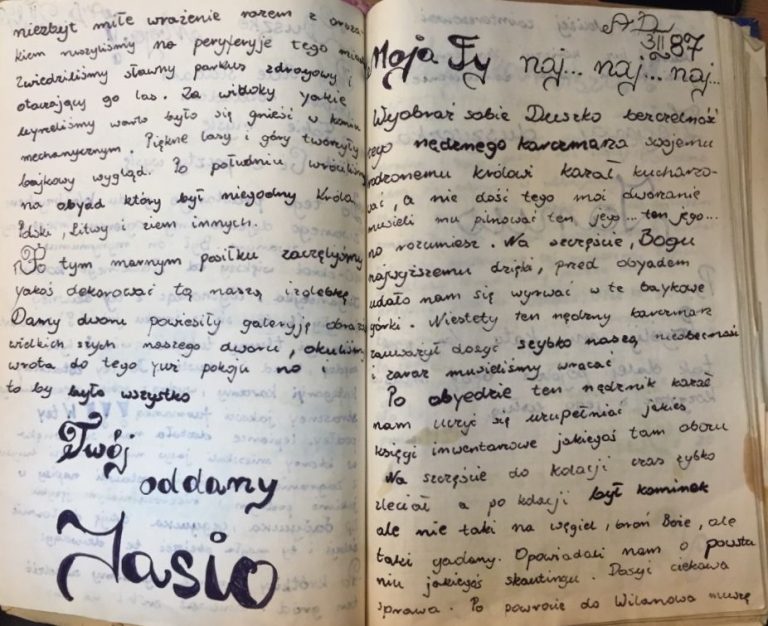 niezbyt miłe wrażenie razem z orsza-
kiem ruszyliśmy na peryferyje tego
Zwiedziliśmy sławny parkus zdrogowy i
otaczający go las. Za widoky jakie
warto było się gnieść w koniu
mechanycznym. Piękne lasy i góry tworzyły
bajkowy wygląd. Po południu wróciliśmy
na obyad który był niegodny Króla
Polski, Litwy i ziem innych.
Po tym marnym posiłku zaczęliyśmy
yakoś dekorować tą naszą izdebkę
Damy dworu powiesiły galeryję obrazów
wielkich naszego dworu, okuliśmy
wrota do tego yuż pokoju no i
to by było wszystko
Twój
oddany
Jasio
AD
3 II 87
Moja Ty naj... naj... naj...
Wyobraź sobie Duszko bezczelność
tego nędznego karczmarza swojemu
rodzonemu królowi kazał kucharzo-
wać, a nie dość tego moi dworzanie
musieli mu pilnować ten jego... ten jego...
no rozumiesz. Na szczęście, Bogu
najwyższemu dzięki, przed obyadem
udało nam się wyrwać w te baykowe
górki. Niestety ten nędzny karczmarz
zauważył dosyć szybko naszą nieobecność
i zaraz musieliśmy wracać
Po obyedzie ten nędznik kazał
nam uczyć się uzupełniać jakieś
księgi inwentarowe jakiegoś tam obozu
Na szczęście do kolacji czas szybko
zleciał a po kolacji był kominek
ale nie taki na węgiel, broń Boże, ale
taki gadany. Opowiadali nam o powsta
niu jakiegoś skautingu. Dosyć ciekawa
sprawa. Po powrocie do Wilanowa muszę